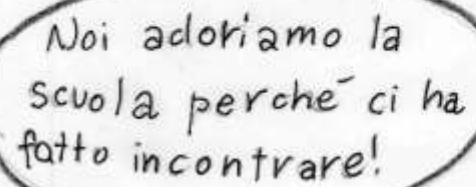 Noi adoriamo la
scuola perché ci ha
fatto incontrare!